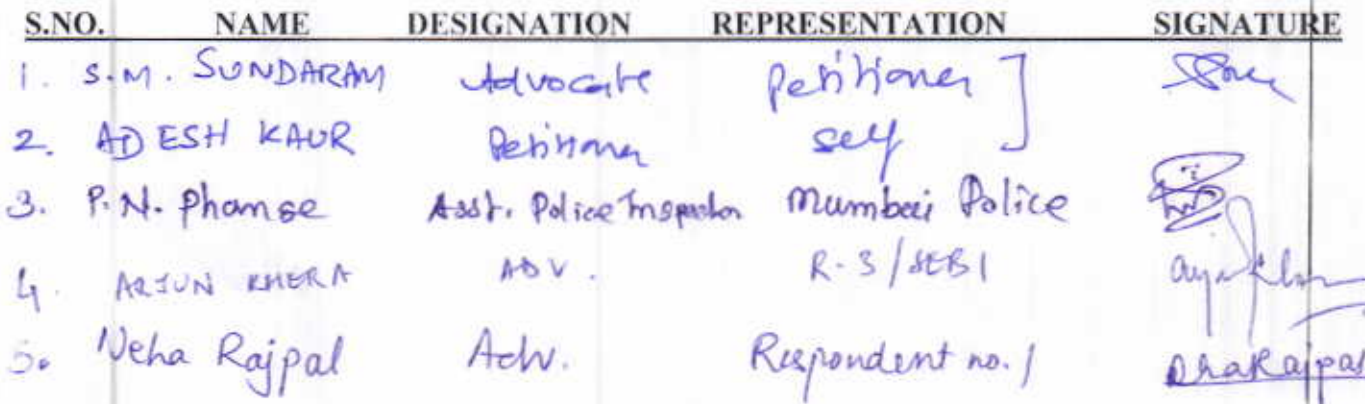 S.NO. NAME DESIGNATION REPRESENTATION SIGNATURE
1. S.M. SUNDARAM Advocate Petitioner ]
2. ADESH KAUR Petitioner self
3. P.N. Phamse Asst. Police Inspector Mumbai Police
4. ARJUN KHERA ADV. R-3/SEBI
5. Neha Rajpal Adv. Respondent no. 1 NhaRajpal